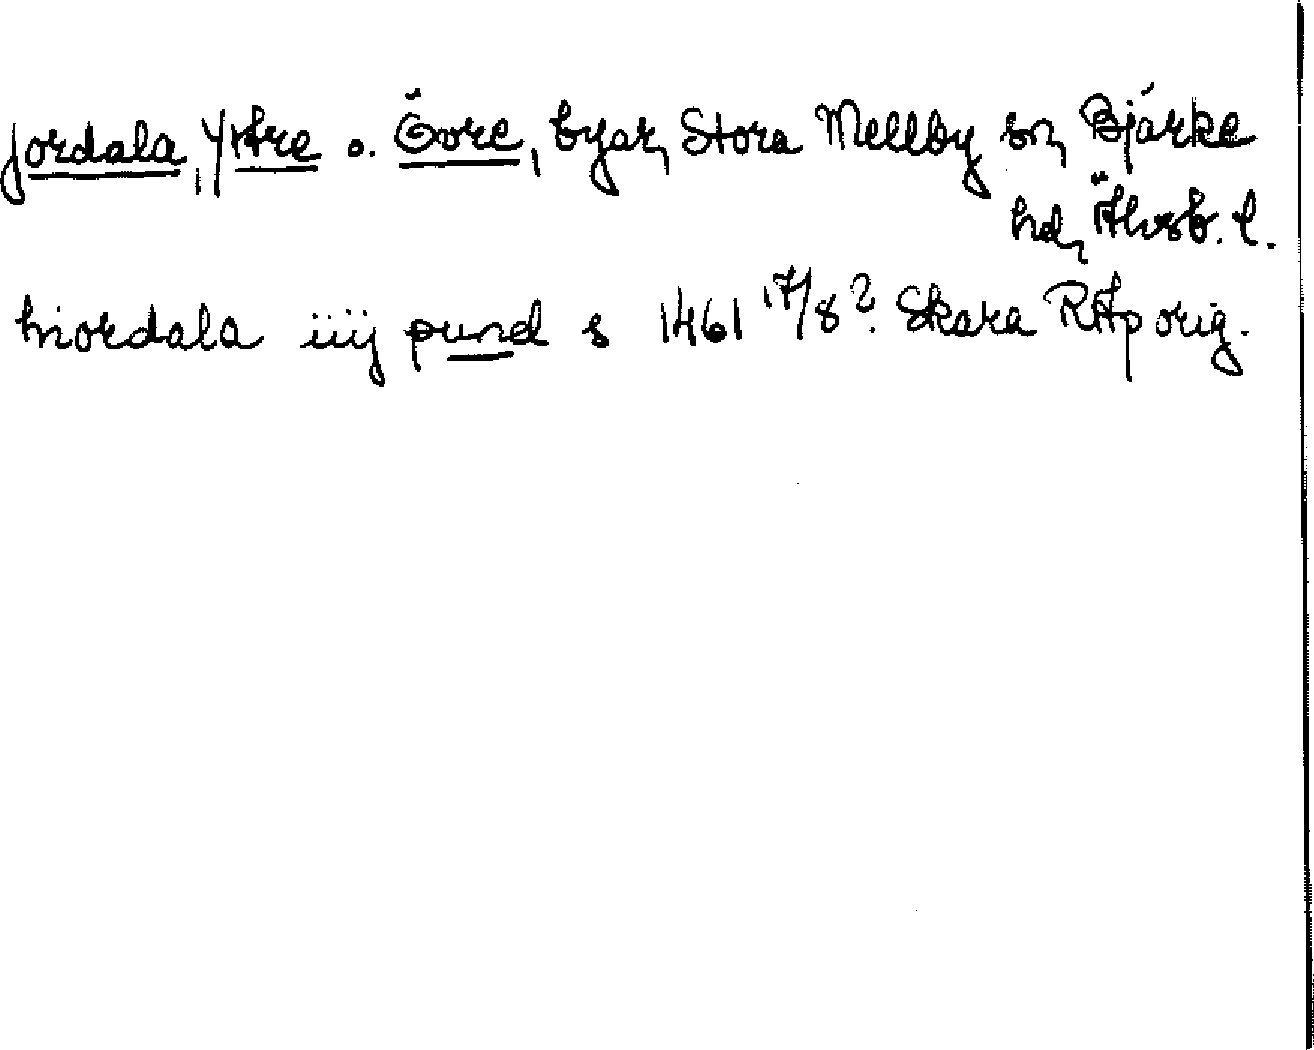 Jordala, Yttre o. Övre, byar, Stora Mellby sn, Bjärke
hd, Älvsb. l.
hiordala iiij pund s 1461 17/8? Skara RAp orig.